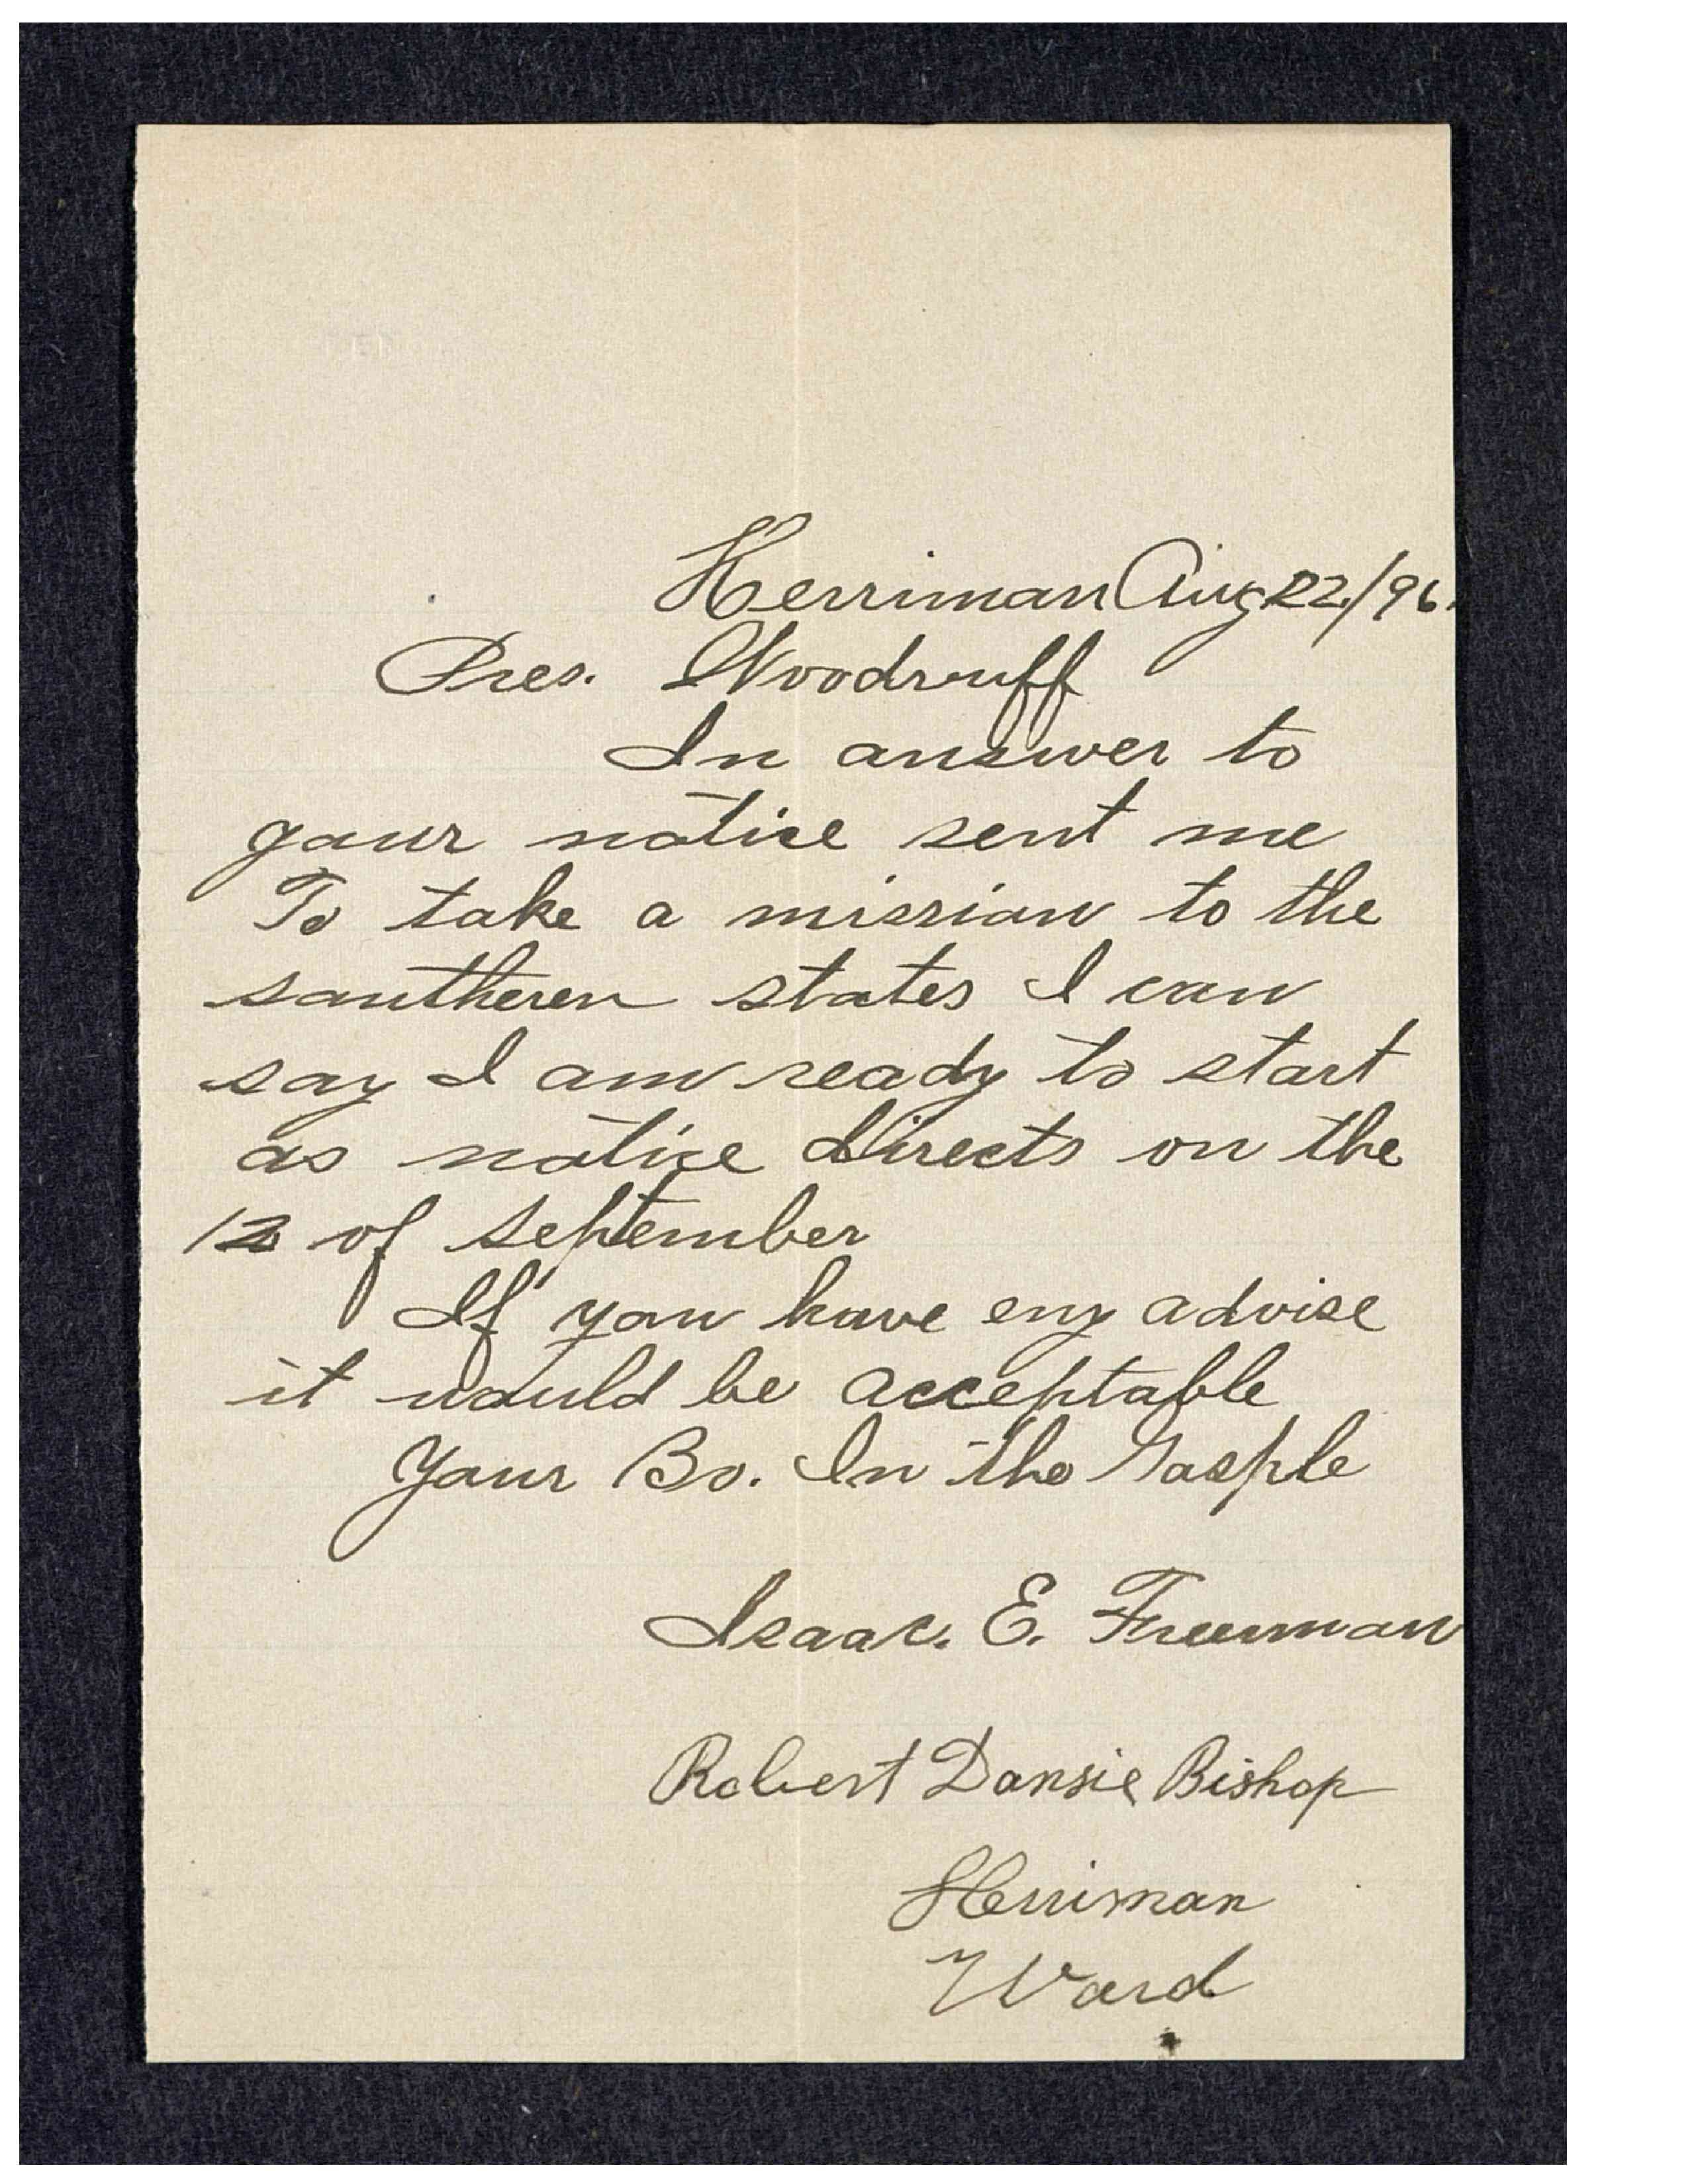 Herriman Aug 22/96.
Pres. Woodruff
In answer to
your notice sent me
To take a mission to the
southeren states I can
say I am ready to start
as notice directs on the
12 of September
If you have eny advise
it would be acceptable
Your Bo. In the Gosple
Isaac. E. Freeman
Robert Dansie Bishop
Herriman
Ward